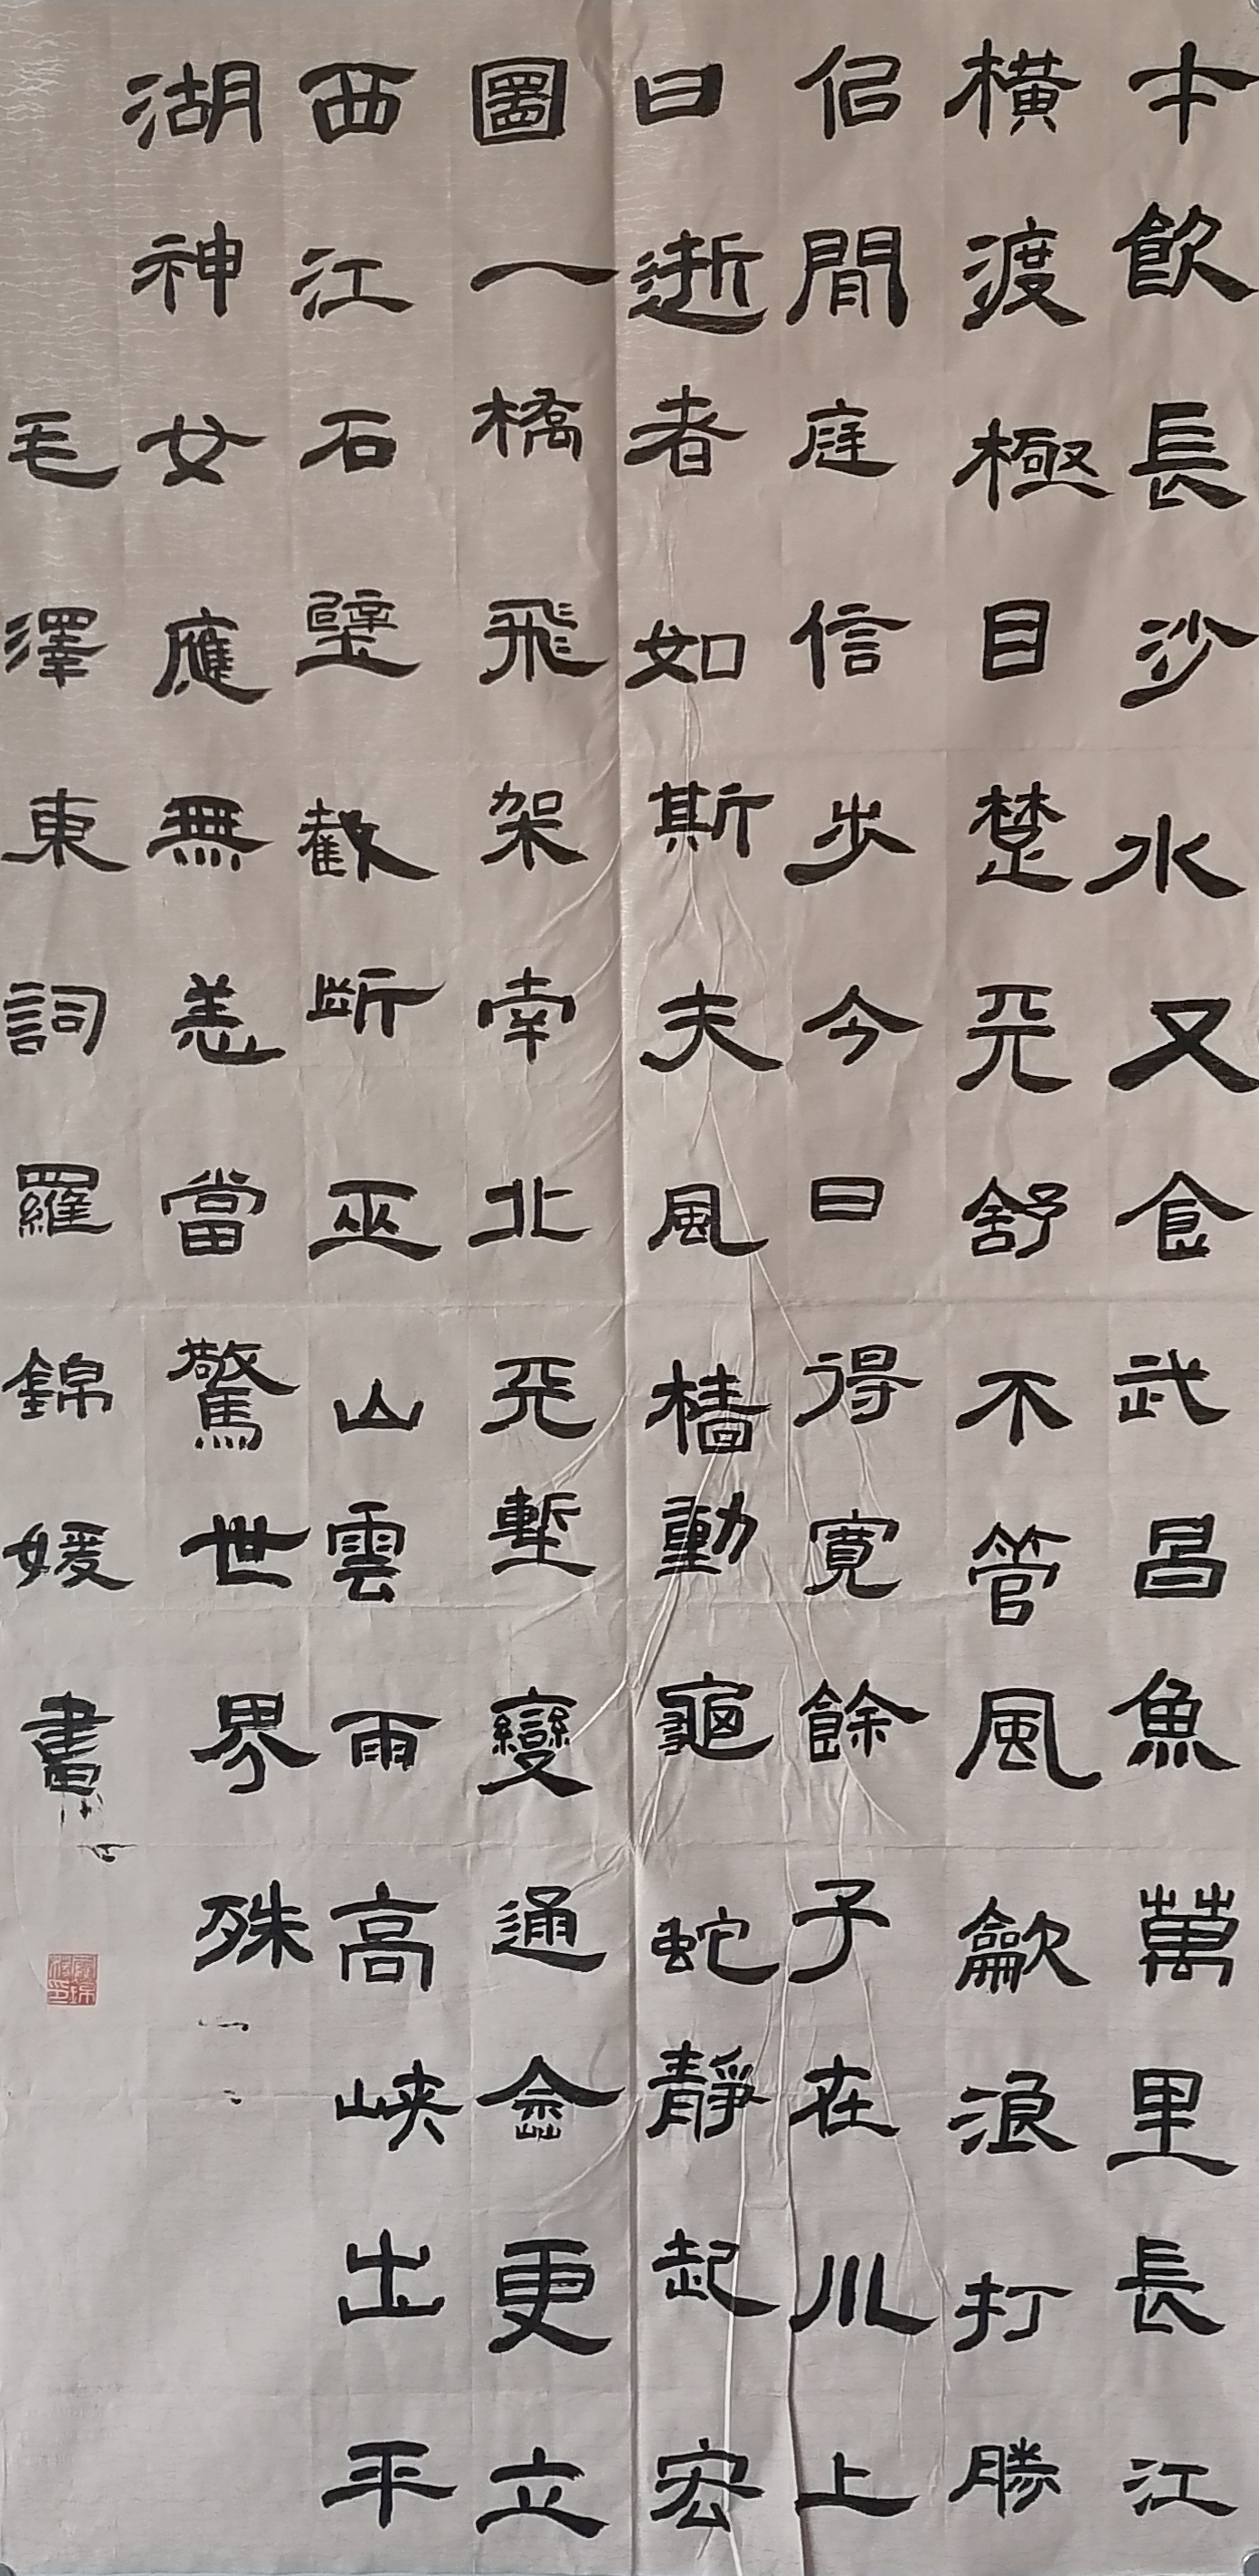 才飲長沙水又食武昌魚萬里長江
橫渡極目楚天舒不管風龡浪打勝
佀閒庭信步今日得寬餘子在川上
曰逝者如斯夫風檣動龜蛇靜起宏
圖一橋飛架南北天塹變通嵞更立
西江石壁截斷巫山雲雨高峽出平
湖神女應無恙當驚世界殊
毛澤東詞羅錦媛書